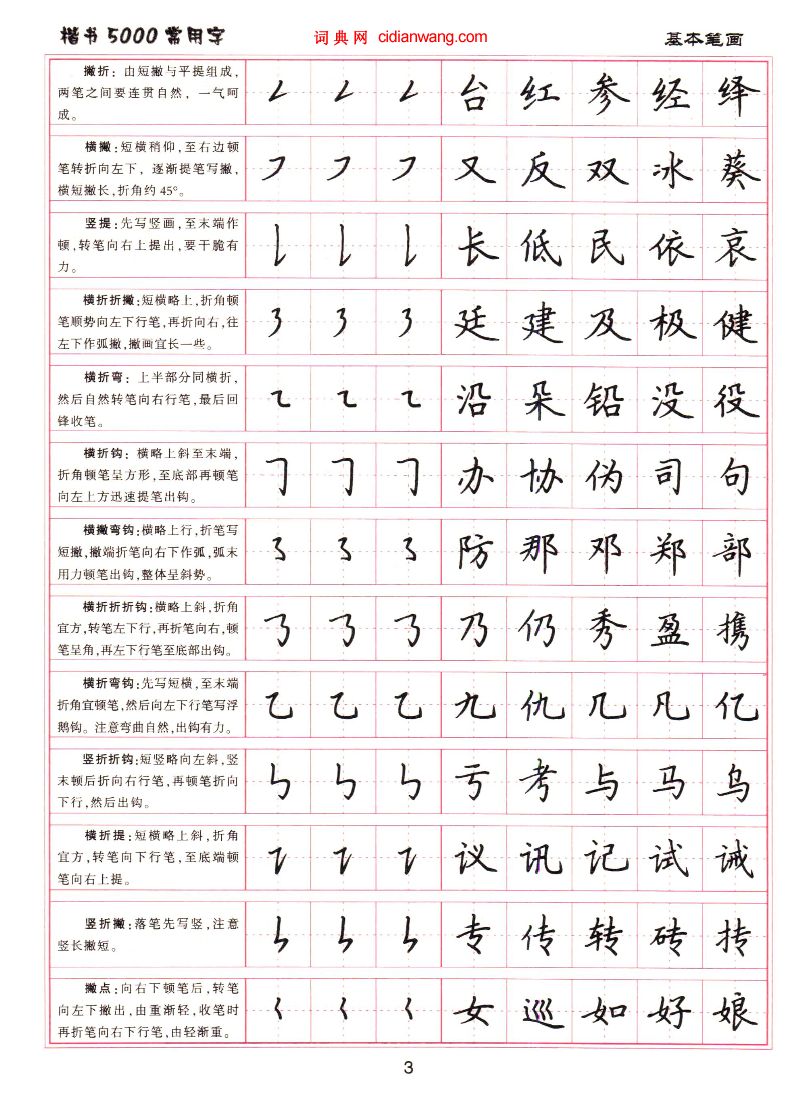 楷书5000常用字
词典网 cidianwang.com
基本笔画
撇折：由短撇与平提组成，
两笔之间要连贯自然，一气呵
成。
台 红 参 经 绎
横撇：短横稍仰，至右边顿
笔转折向左下，逐渐提笔写撇，
横短撇长，折角约45°。
又 反 双 冰 葵
竖提：先写竖画，至末端作
顿，转笔向右上提出，要干脆有
力。
长 低 民 依 哀
横折折撇：短横略上，折角顿
笔顺势向左下行笔，再折向右，往
左下作弧撇，撇画宜长一些。
廷 建 及 极 健
横折弯：上半部分同横折，
然后自然转笔向右行笔，最后回
锋收笔。
沿 朵 铅 没 役
横折钩：横略上斜至末端，
折角顿笔呈方形，至底部再顿笔
向左上方迅速提笔出钩。
办 协 伪 司 句
横撇弯钩：横略上行，折笔写
短撇，撇端折笔向右下作弧，弧末
用力顿笔出钩，整体呈斜势。
防 那 邓 郑 部
横折折折钩：横略上斜，折角
宜方，转笔左下行，再折笔向右，顿
笔呈角，再左下行笔至底部出钩。
乃 仍 秀 盈 携
横折弯钩：先写短横，至末端
折角宜顿笔，然后向左下行笔写浮
鹅钩。注意弯曲自然，出钩有力。
九 仇 几 凡 亿
竖折折钩：短竖略向左斜，竖
末顿后折向右行笔，再顿笔折向
下行，然后出钩。
亏 考 与 马 乌
横折提：短横略上斜，折角
宜方，转笔向下行笔，至底端顿
笔向右上提。
议 讯 记 试 诫
竖折撇：落笔先写竖，注意
竖长撇短。
专 传 转 砖 抟
撇点：向右下顿笔后，转笔
向左下撇出，由重渐轻，收笔时
再折笔向右下行笔，由轻渐重。
女 巡 如 好 娘
3